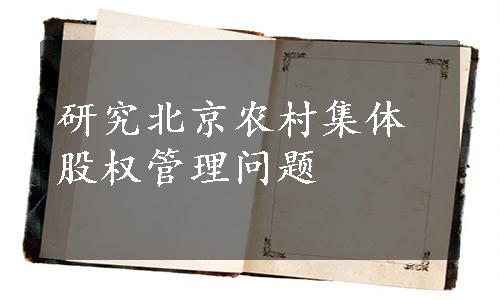 研究北京农村集体
股权管理问题